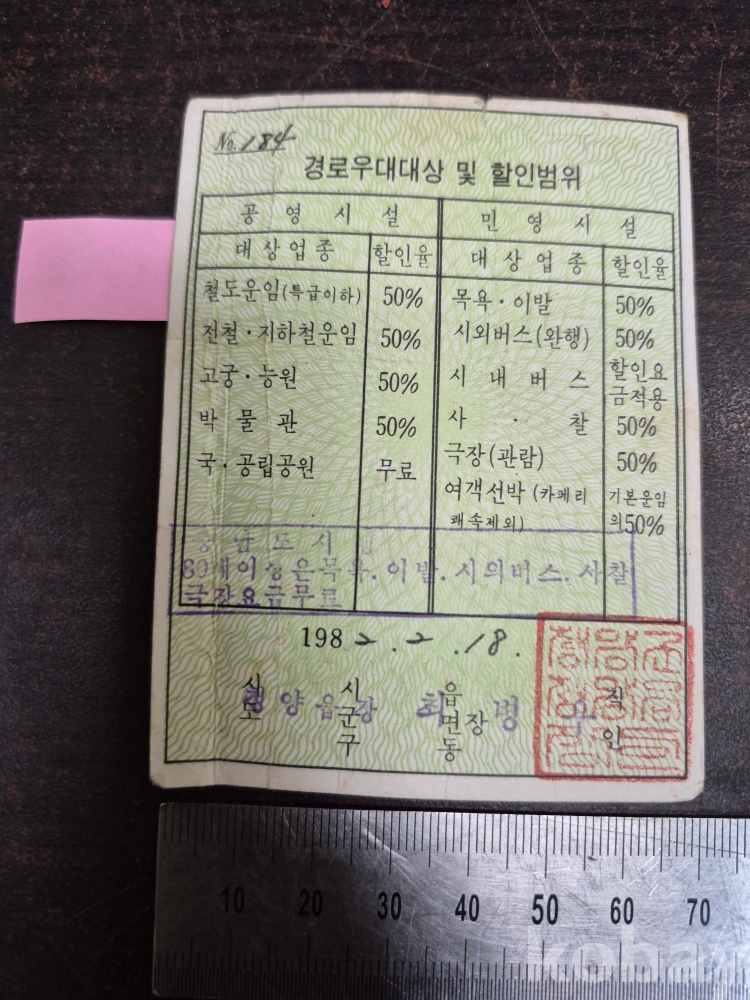 No. 184
경로우대대상 및 할인범위
공영시설 민영시설
대상업종 할인율 대상업종 할인율
철도운임(특급이하) 50% 목욕·이발 50%
전철·지하철운임 50% 시외버스(완행) 50%
고궁·능원 50% 시내버스 할인요금적용
박물관 50% 사·찰 50%
국·공립공원 무료 극장(관람) 50%
여객선박(카페리 기본운임
쾌속제외) 의50%
80세이상은목욕.이발.시외버스.사찰
극장요금무료
1982.2.18.
시 시 읍
도 군 면장 직
구 동 인
양읍장 최병우
10 20 30 40 50 60 70
kobay